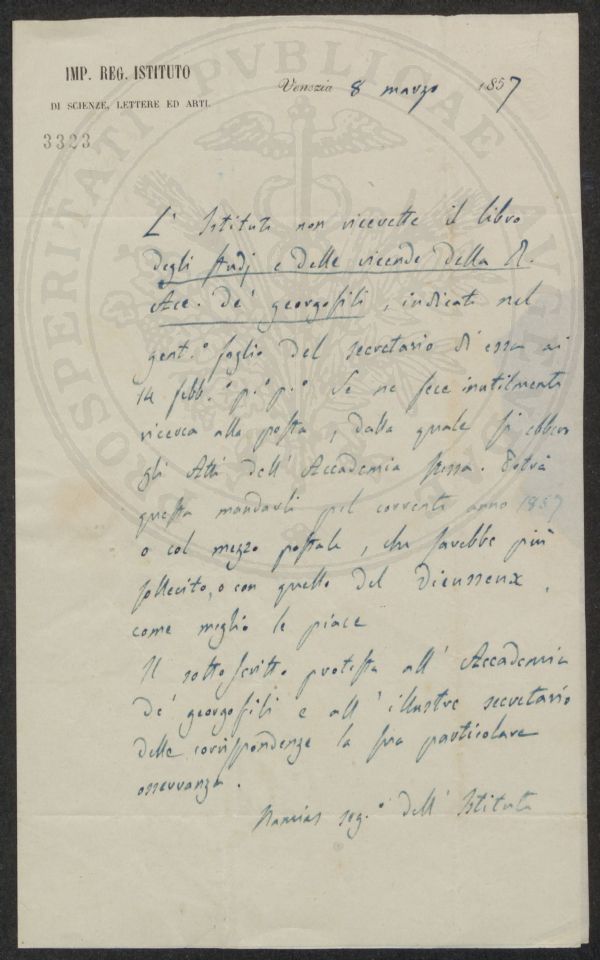 IMP. REG. ISTITUTO
DI SCIENZE, LETTERE ED ARTI.
3323
Venezia 8 marzo 1857
L' Istituto non ricevette il libro
degli studj e delle vicende della R.
Acc. de' georgofili, indicato nel
gent.º foglio del secretario di essa ai
14 febb.º p.º p.º Se ne fece inutilmente
ricerca alla posta, dalla quale si ebbero
gli Atti dell' Accademia stessa. Potrà
questa mandarli pel corrente anno 1857
o col mezzo postale, che sarebbe più
sollecito, o con quello del Vieusseux,
come meglio le piace
Il sottoscritto protesta all' Accademia
de' georgofili e all' illustre secretario
delle corrispondenze la sua particolare
osservanza.
Namias seg.º dell' Istituto
PROSPERITATI PVBLICAE AVG